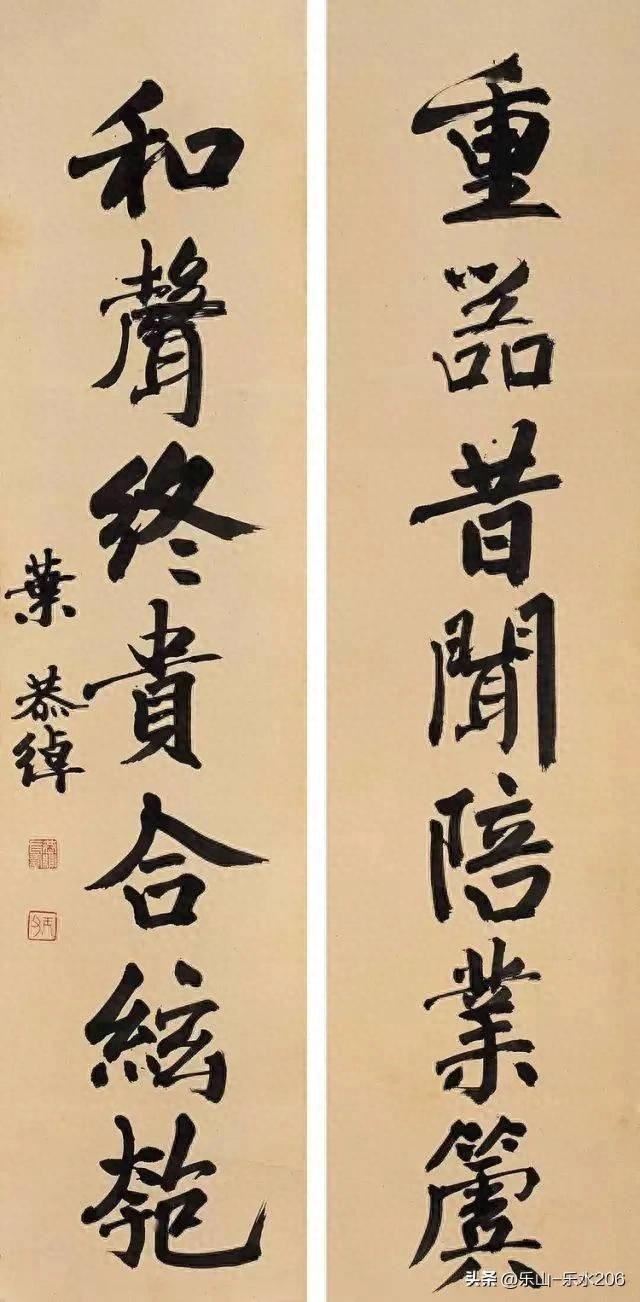 重器昔聞陪業簴
和聲終貴合絃匏
葉恭綽
头条@乐山-乐水206